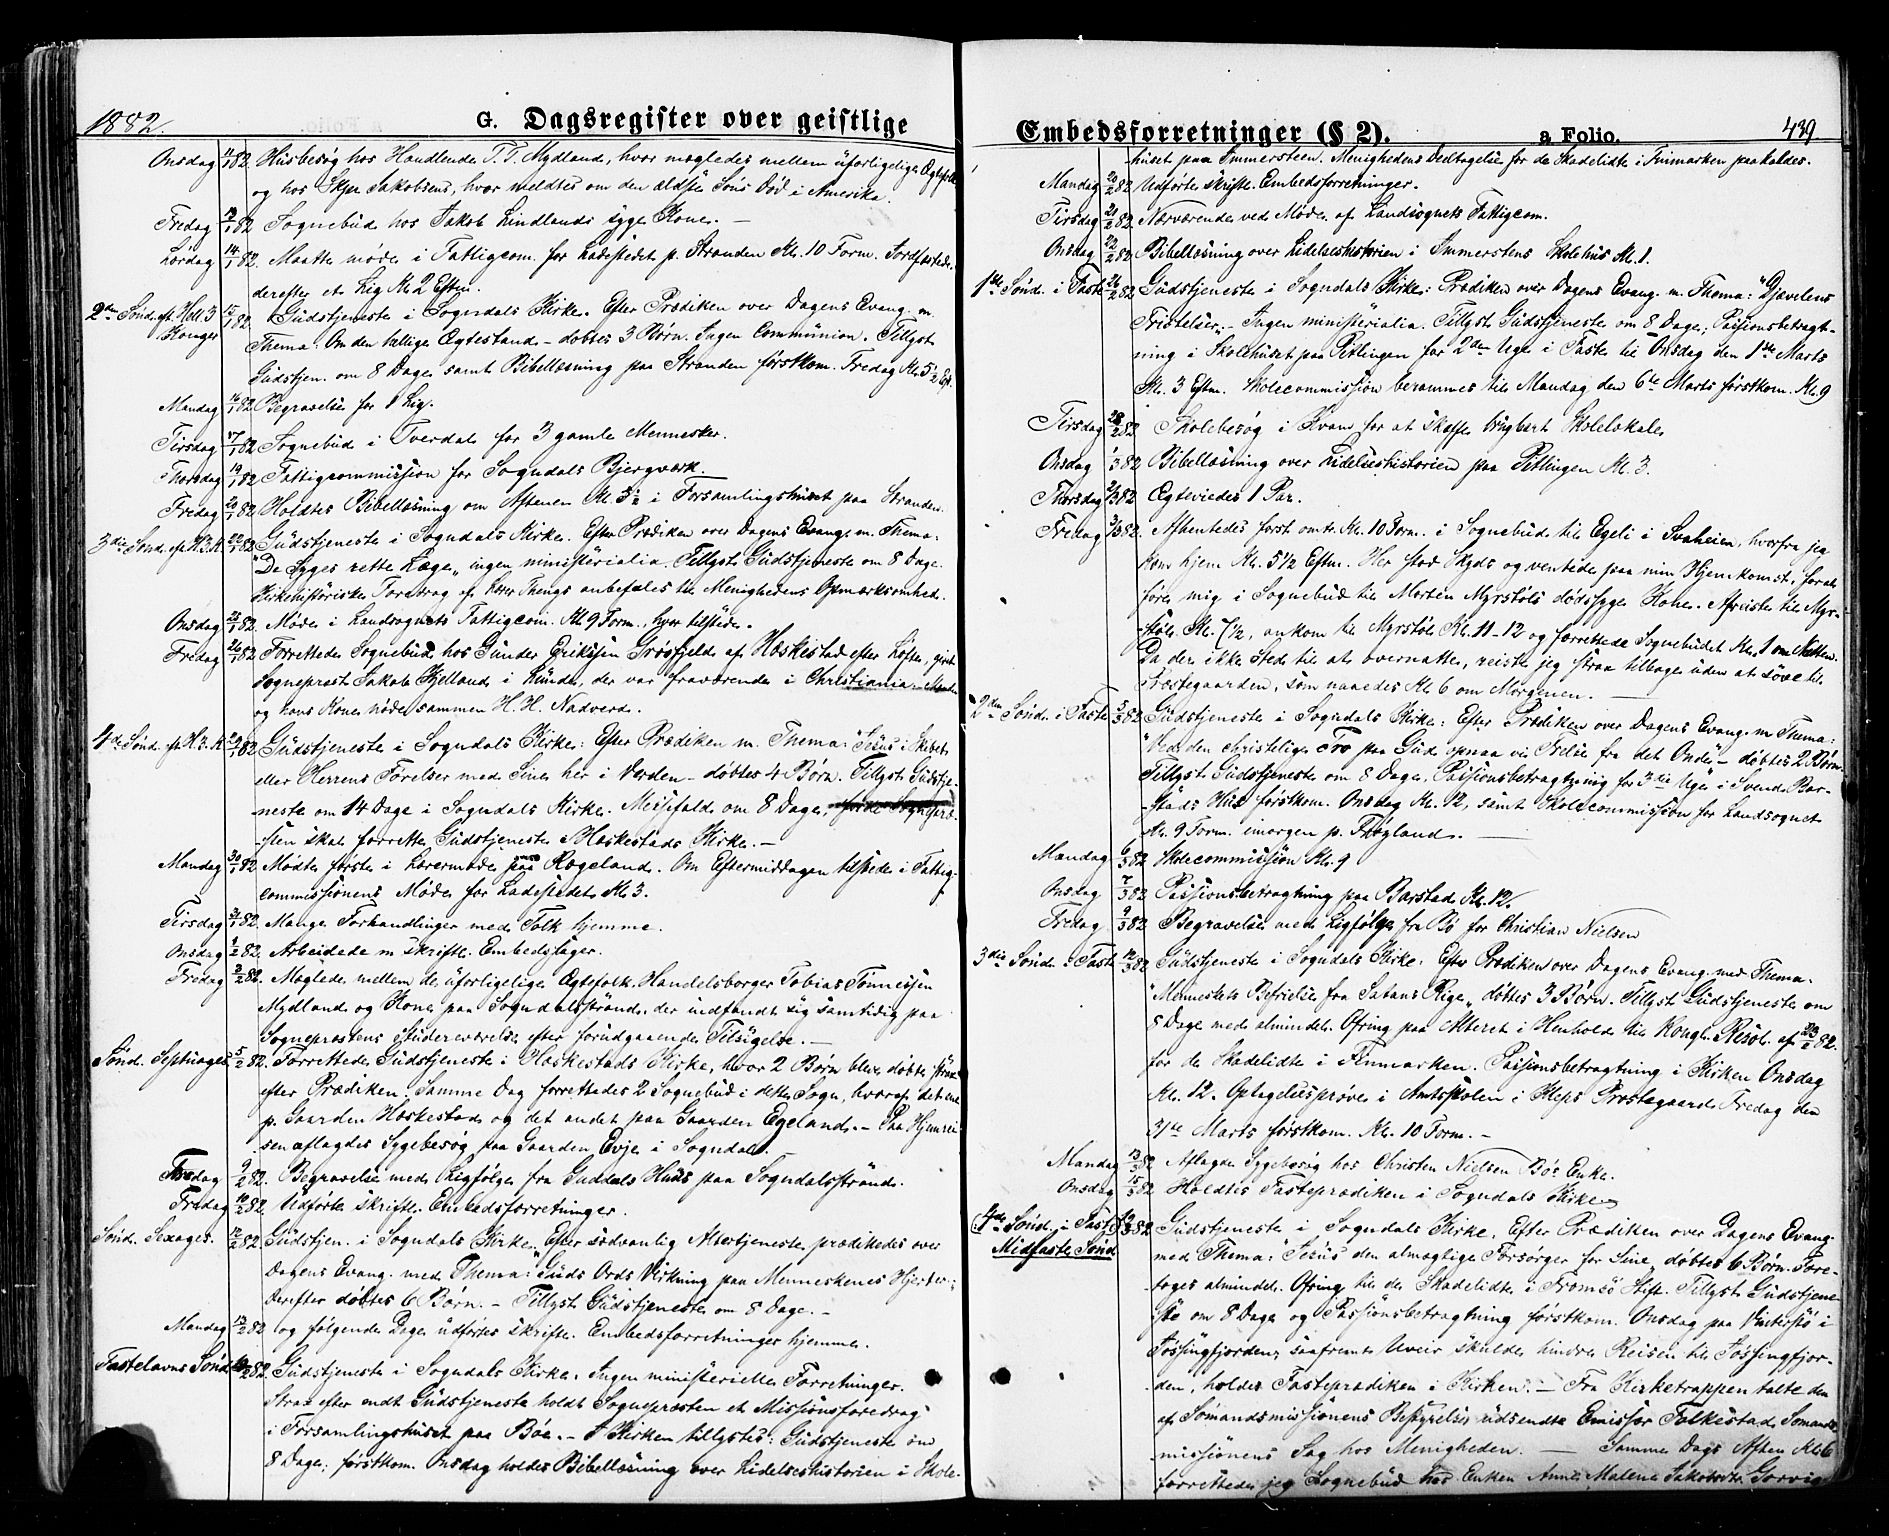 1882.
G. Dagsregister over geistlige
Onsdag 11/1 82. Husbesøg hos Handlende T. T. Mydland, hvor mægledes mellem uforligelige Ægtefolk
og hos Skpr Jakobsens, hvor meldtes om den ældste Søns Død i Amerika.
Fredag 13/1 82 Sognebud hos Jakob Lindlands syge Kone. —
Lørdag 14/1 82. Maatte møde i Fattigcom. for Ladestedet p. Stranden Kl. 10 Form. Jordfæstede
derefter et Lig Kl. 2 Eftm.
2den Sønd. eft. Hell. 3 Konger 15/1 82. Gudstjeneste i Sogndals Kirke. Efter Prædiken over Dagens Evang. m.
Thema: Om den hellige Ægtestand – døbtes 3 Børn. Ingen Communion. Tillyst
Gudstjen. om 8 Dage samt Bibellæsning paa Stranden førstkom. Fredag Kl. 5½ Eft.
Mandag 16/1 82 Begravelse for 1 Lig.
Tirsdag 17/1 82 Sognebud i Tverdal for 3 gamle Mennesker.
Thorsdag 19/1 82 Fattigcommission for Sogndals Bjergværk.
Fredag 20/1 82 Holdtes Bibellæsning om Aftenen Kl. 5½ i Forsamlingshuset paa Stranden.
3die Sønd. eft. H. 3. K. 22/1 82 Gudstjeneste i Sogndals Kirke. Efter Prædiken over Dagens Evang. m. Thema:
"De Syges rette Læge" ingen ministerialia. Tillyst Gudstjeneste om 8 Dage.
Kirkehistoriske Foredrag af Lærer Thengs anbefales til Menighedens Opmærksomhed.
Onsdag 25/1 82. Møde i Landsognets Fattigcom. Kl. 9 Form., hvor tilstede.
Fredag 26/1 82 Forrettede Sognebud hos Gunder Eriksen Grøsfjeld af Hæskestad efter Løfte, givet
Sogneprest Jakob Kjelland i Lunde, der var fraværende i Christiania. Manden
og hans Kone nøde sammen H. H. Nadverd.
4de Sønd. eft. H. 3. K. 29/1 82 Gudstjeneste i Sogndals Kirke: Efter Prædiken m. Thema: "Jesus i Skibet,
eller Herrens Førelser med Sine her i Verden – døbtes 4 Børn. Tillyst Gudstje-
neste om 14 Dage i Sogndals Kirke. Messefald om 8 Dage,
sten skal forrette Gudstjeneste i Hæskestads Kirke. —
Mandag 30/1 82 Mødte først i Lærermøde paa Rægeland. Om Eftermiddagen tilstede i Fattig-
commissionens Møde for Ladestedet Kl. 3.
Tirsdag 31/1 82. Mange Forhandlinger med Folk hjemme.
Onsdag 1/2 82. Arbeidede m. skriftl. Embedssager.
Fredag 3/2 82. Mægledes mellem de uforligelige Ægtefolk Handelsborger Tobias Tønnessen
Mydland og Kone paa Sogndalsstrand, der indfandt sig samtidig paa
Sogneprestens Studereværelse efter forudgaaende Tilsigelse. —
Sønd. Septuages. 5/2 82. Forrettede Gudstjeneste i Hæskestads Kirke, hvor 2 Børn bleve døbte strax
efter Prædiken. Samme Dag forrettedes 2 Sognebud i dette Sogn, hvoraf det ene
p. Gaarden Hæskestad og det andet paa Gaarden Egeland. – Paa Hjemrei-
sen aflagdes Sygebesøg paa Gaarden Evje i Sogndal.
Torsdag 9/2 82. Begravelse med Ligfølge fra Guddals Huus paa Sogndalsstrand.
Fredag 10/2 82. Udførte skriftl. Embedsforretninger.
Sønd. Sexages. 12/2 82 Gudstjen. i Sogndals Kirke. Efter sædvanlig Altertjeneste prædikedes over
Dagens Evang. med Thema: Guds Ords Virkning paa Menneskenes Hjerter.
Derefter døbtes 6 Børn. – Tillyst Gudstjeneste om 8 Dage. –
Mandag 13/2 82 og følgende Dage udførtes skriftl. Embedsforretninger hjemme.
Fastelavns Sønd. 19/2 82. Gudstjeneste i Sogndals Kirke. Ingen ministerielle Forretninger.
Strax efter endt Gudstjeneste holdt Sognepresten et Missionsforedrag
i Forsamlingshuset paa Bøe. – I Kirken tillystes: Gudstjeneste om
8 Dage; førstkom. Onsdag holdes Bibellæsning over Lidelseshistorien i Skole-
Embedsforretninger (§ 2).
a Folio.
439
huset paa Immersteen. Menighedens Deltagelse for de Skadelidte i Finmarken paakaldes.
Mandag 20/2 82 Udførte skriftl. Embedsforretninger.
Tirsdag 21/2 82 Nærværende ved Møde af Landsognets Fattigcom.
Onsdag 22/2 82 Bibellæsning over Lidelseshistorien i Immerstens Skolehus Kl. 1.
1ste Sønd. i Faste 26/2 82 Gudstjeneste i Sogndals Kirke: Prædiken over Dagens Evang. m. Thema: "Djævelens
Fristelser. – Ingen ministerialia. Tillyst Gudstjeneste om 8 Dage; Passionsbetragt-
ning i Skolehuset paa Titlingen for 2den Uge i Faste til Onsdag den 1ste Marts
Kl. 3 Eftm. Skolecommission berammes til Mandag den 6te Marts førstkom. Kl. 9
Tirsdag 28/2 82 Skolebesøg i Kvam for at skaffe brugbart Skolelokale
Onsdag 1/3 82 Bibellæsning over Lidelseshistorien paa Titlingen Kl. 3.
Thorsdag 2/3 82 Ægteviedes 1 Par.
Fredag 3/3 82. Afhentedes først omtr. Kl. 10 Form. i Sognebud til Egeli i Svaheien, hvorfra jeg
kom hjem Kl. 5½ Eftm. Her stod Skyds og ventede paa min Hjemkomst, for at
føre mig i Sognebud til Morten Myrstøls dødssyge Kone. Afreiste til Myr-
støl Kl. 7½, ankom til Myrstøl Kl. 11–12 og forrettede Sognebudet Kl. 1 om Natten.
Da der ikke Sted til at overnatte, reiste jeg strax tilbage uden at sove til
Prestegaarden, som naaedes Kl. 6 om Morgenen. —
2den Sønd. i Faste 5/3 82 Gudstjeneste i Sogndals Kirke: Efter Prædiken over Dagens Evang. m Thema:
"Ved den christelige Tro paa Gud opnaa vi Frelse fra det Onde" – døbtes 2 Børn.
Tillyst Gudstjeneste om 8 Dage, Passionsbetragtning for 3die Uge i Svend Bar-
stads Hus førstkom. Onsdag Kl. 12, samt Skolecommission for Landsognet
Kl. 9 Form. imorgen p. Frøyland. —
Mandag 6/3 82 Skolecommission Kl. 9
Onsdag 7/3 82 Passionsbetragtning paa Barstad Kl. 12.
Fredag 9/3 82 Begravelse med Ligfølge fra Bø for Christian Nielsen
3die Sønd. i Faste 12/3 82 Gudstjeneste i Sogndals Kirke: Efter Prædiken over Dagens Evang. med Thema.
"Menneskets Befrielse fra Satans Rige" døbtes 3 Børn. Tillyst Gudstjeneste om
8 Dage med almindel. Ofring paa Alteret i Henhold til Kongl. Resol. af 82.
for de Skadelidte i Finmarken. Passionsbetragtning i Kirken Onsdag
Kl. 12. Optagelsesprøve i Amtsskolen i Kleps Prestegaard Fredag den
31te Marts førstkom. Kl. 10 Form. –
Mandag 13/3 82 Aflagde Sygebesøg hos Christen Nielsen Bøs Enke.
Onsdag 15/3 82 Holdtes Fasteprædiken i Sogndals Kirke
4de Sønd. i Faste Midfaste Sønd 19/3 82 Gudstjeneste i Sogndals Kirke. Efter Prædiken over Dagens Evang.
med Thema: "Jesus den almægtige Forsørger for Sine" døbtes 6 Børn. Fore-
toges almindel. Ofring til de Skadelidte i Tromsø Stift. Tillyst Gudstjene-
ste om 8 Dage og Passionsbetragtning førstkom. Onsdag paa Vinterstø i
Jøssingfjorden; saafremt Uveir skulde hindre Reisen til Jøssingfjor-
den, holdes Fasteprædiken i Kirken. – Fra Kirketrappen talte den
af Sømandsmissionens Bestyrelse udsendte Emissær Folkestad Sømands-
missionens Sag hos Menigheden. — Samme Dags Aften Kl. 6
forrettede jeg Sognebud hos Enken Anne Malene Jakobsdtr Gorvig